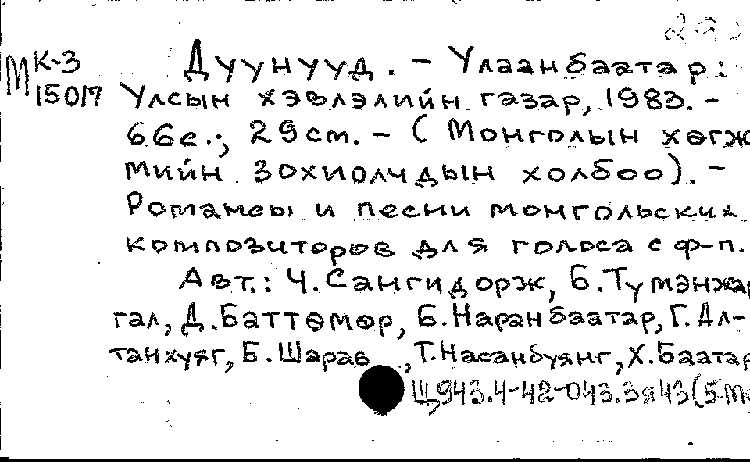 М К-3
15017
Дуунууд. - Улаанбаатар:
Улсын хэвлэлийн газар, 1983. -
66с.; 29см. - (Монголын хөгж
мийн зохиолчдын холбоо). -
Романсы и песни монгольских
композиторов для голоса с ф-п.
Авт.: Ч.Сангидорж, Б.Түмэнжар
гал, Д.Баттөмөр, Б.Наранбаатар, Г.Ал-
танхуяг, Б.Шарав, Т.Насанбуянг, Х.Баатар
Щ943.4-42-043.3я43(5Мо